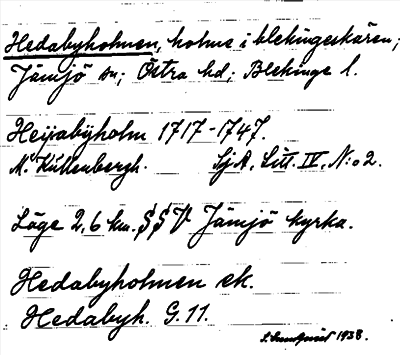 Hedabyholmen, holme i blekingeskären;
Jämjö sn; Östra hd; Blekinge l.
Heijsabÿholm 1717-1747.
M. Kullenbergh. SjA, Litt. IV, N:o 2.
Läge 2,6 km. SSV Jämjö kyrka.
Hedabyholmen ek.
Hedabyh. G. 11.
1938.